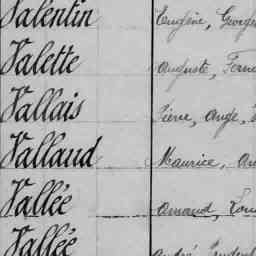 Valentin Eugène, George
Valette Auguste,
Vallais Pierre, Ange,
Vallaud Maurice,
Vallée Amand,
Vallée André